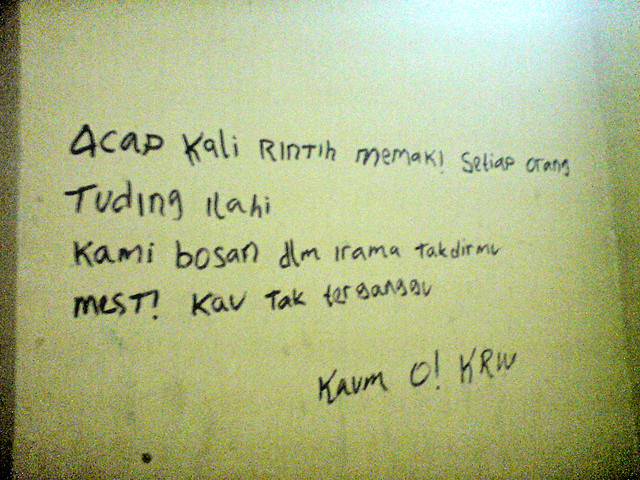 Acap Kali Rintih memaki setiap orang
Tuding Ilahi
Kami bosan dlm irama takdirmu
mesti Kau Tak terganggu
Kaum O! KRW